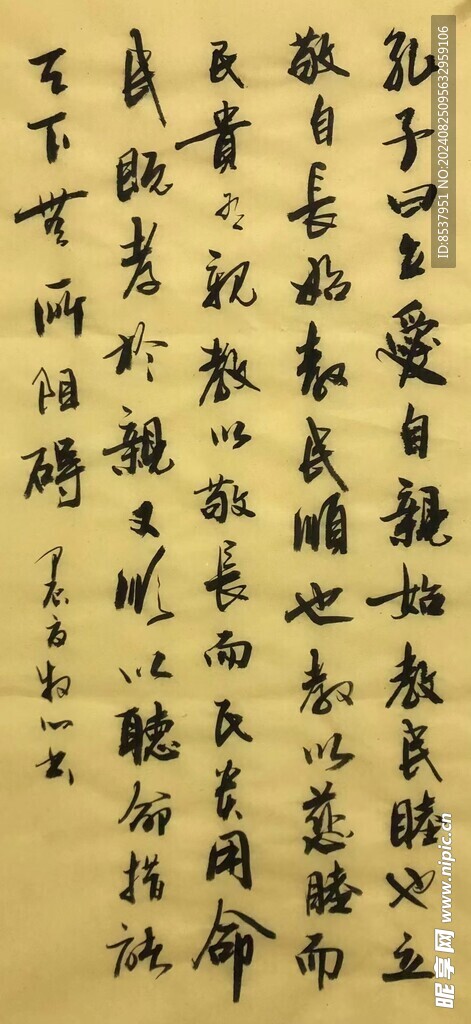 孔子曰立愛自親始教民睦也立
敬自長始教民順也教以慈睦而
民貴有親教以敬長而民贵用命
民既孝於親又順以聽命措諸
天下無所阻碍
牧心书
ID:8537951 NO:20240825095632959106
昵享网 www.nipic.cn